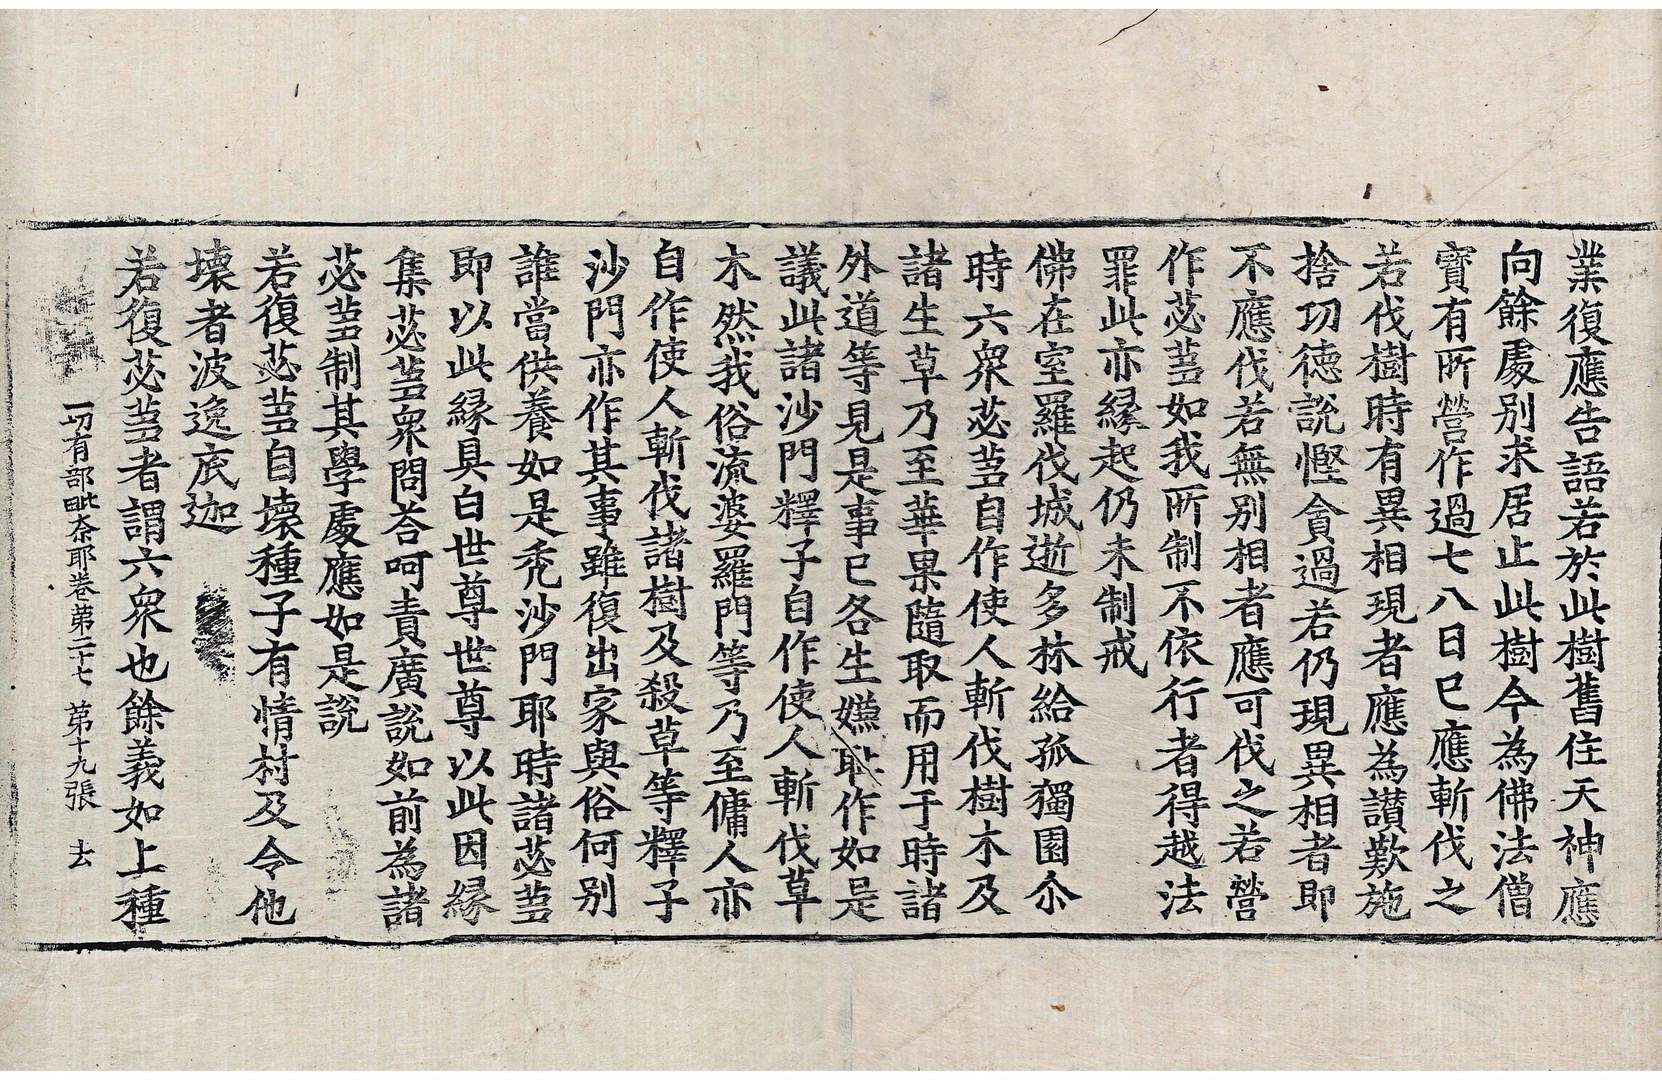 業復應告語若於此樹舊住天神應
向餘處別求居止此樹今為佛法僧
寶有所營作過七八日已應斬伐之
若伐樹時有異相現者應為讃歎施
捨功德說慳貪過若仍現異相者即
不應伐若無別相者應可伐之若營
作苾芻如我所制不依行者得越法
罪此亦緣起仍未制戒
佛在室羅伐城逝多林給孤獨園尒
時六衆苾芻自作使人斬伐樹木及
諸生草乃至華果隨取而用于時諸
外道等見是事已各生嫌恥作如是
議此諸沙門釋子自作使人斬伐草
木然我俗流婆羅門等乃至傭人亦
自作使人斬伐諸樹及殺草等釋子
沙門亦作其事雖復出家與俗何別
誰當供養如是禿沙門耶時諸苾芻
即以此緣具白世尊世尊以此因緣
集苾芻衆問荅呵責廣說如前為諸
苾芻制其學處應如是說
若復苾芻自壞種子有情村及令他
壞者波逸底迦
若復苾芻者謂六衆也餘義如上種
一切有部毗奈耶卷第二十七 第十九張 去